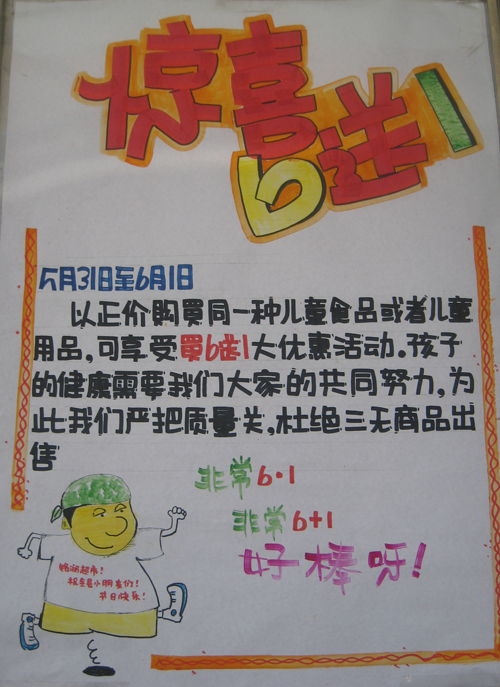 惊喜
6送1
5月31日至6月1日
以正价購買同一种儿童食品或者儿童
用品,可享受買6送1大优惠活动。孩子
的健康需要我们大家的共同努力,为
此我们严把质量关,杜绝三无商品出
售
非常6·1
非常6+1
好棒呀!
超市!
祝小朋友们!
节日快乐!